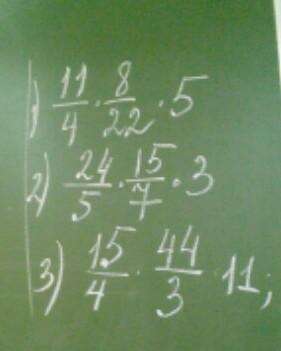 1) 11/4 · 8/22 · 5
2) 24/5 · 15/7 · 3
3) 15/4 · 44/3 · 11;